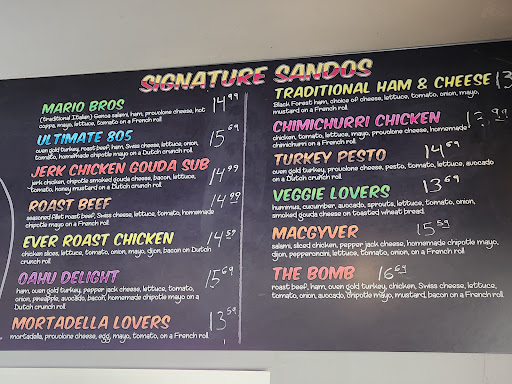 SIGNATURE SANDOS
MARIO BROS 14.99
(traditional Italian) Genoa salami, ham, provolone cheese, hot
coppa, mayo, lettuce, tomato on a French roll
ULTIMATE 805 15.69
oven gold turkey, roast beef, ham, Swiss cheese, lettuce, onion,
tomato, homemade chipotle mayo on a Dutch crunch roll
JERK CHICKEN GOUDA SUB 14.99
jerk chicken, chipotle smoked gouda cheese, bacon, lettuce,
tomato, honey mustard on a Dutch crunch roll
ROAST BEEF 14.99
seasoned filet roast beef, Swiss cheese, lettuce, tomato, homemade
chipotle mayo on a French roll
EVER ROAST CHICKEN 14.59
chicken slices, lettuce, tomato, onion, mayo, dijon, bacon on Dutch
crunch roll
OAHU DELIGHT 15.69
ham, oven gold turkey, pepper jack cheese, lettuce, tomato,
onion, pineapple, avocado, bacon, homemade chipotle mayo on a
Dutch crunch roll
MORTADELLA LOVERS 13.59
mortadella, provolone cheese, egg, mayo, tomato on a French roll
TRADITIONAL HAM & CHEESE 13
Black Forest ham, choice of cheese, lettuce, tomato, onion, mayo,
mustard on a French roll
CHIMICHURRI CHICKEN 13.99
chicken, tomato, lettuce, mayo, provolone cheese, homemade
chimichurri on a French roll
TURKEY PESTO 14.69
oven gold turkey, provolone cheese, pesto, tomato, lettuce, avocado
on a Dutch crunch roll
VEGGIE LOVERS 13.69
hummus, cucumber, avocado, sprouts, lettuce, tomato, onion,
smoked gouda cheese on toasted wheat bread
MACGYVER 15.59
salami, sliced chicken, pepper jack cheese, homemade chipotle mayo,
dijon, pepperoncini, lettuce, tomato, onion on a French roll
THE BOMB 16.69
roast beef, ham, oven gold turkey, chicken, Swiss cheese, lettuce,
tomato, onion, avocado, chipotle mayo, mustard, bacon on a French roll